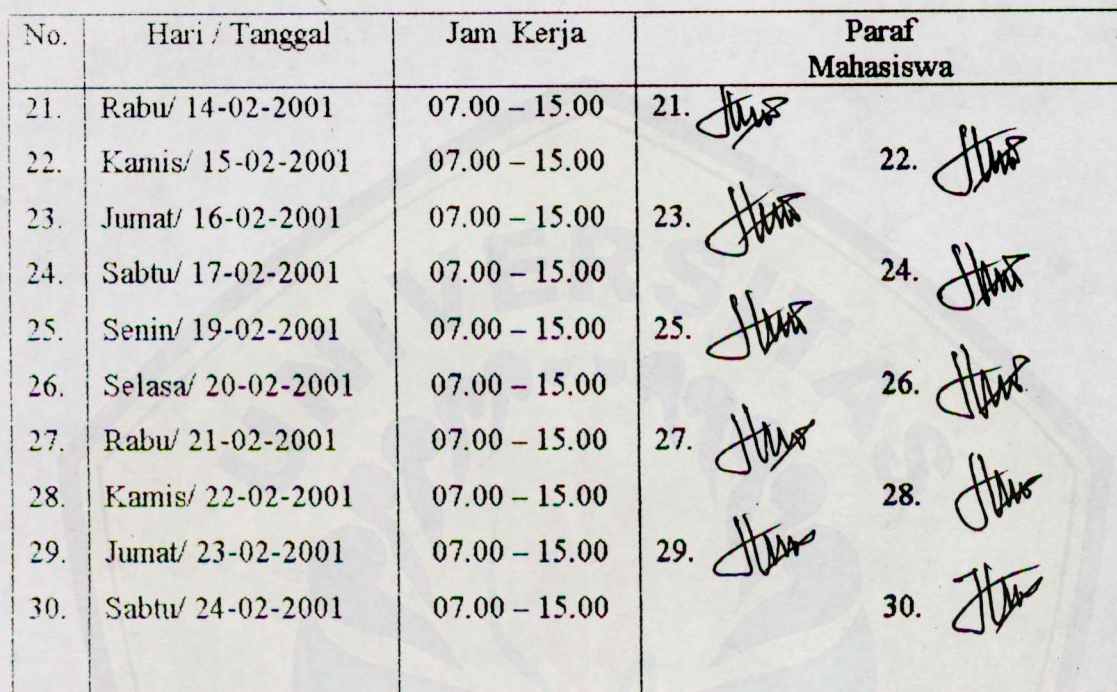 No. Hari / Tanggal Jam Kerja Paraf
Mahasiswa
21. Rabu/ 14-02-2001 07.00 – 15.00 21.
22. Kamis/ 15-02-2001 07.00 – 15.00 22.
23. Jumat/ 16-02-2001 07.00 – 15.00 23.
24. Sabtu/ 17-02-2001 07.00 – 15.00 24.
25. Senin/ 19-02-2001 07.00 – 15.00 25.
26. Selasa/ 20-02-2001 07.00 – 15.00 26.
27. Rabu/ 21-02-2001 07.00 – 15.00 27.
28. Kamis/ 22-02-2001 07.00 – 15.00 28.
29. Jumat/ 23-02-2001 07.00 – 15.00 29.
30. Sabtu/ 24-02-2001 07.00 – 15.00 30.
UNIVERSITAS